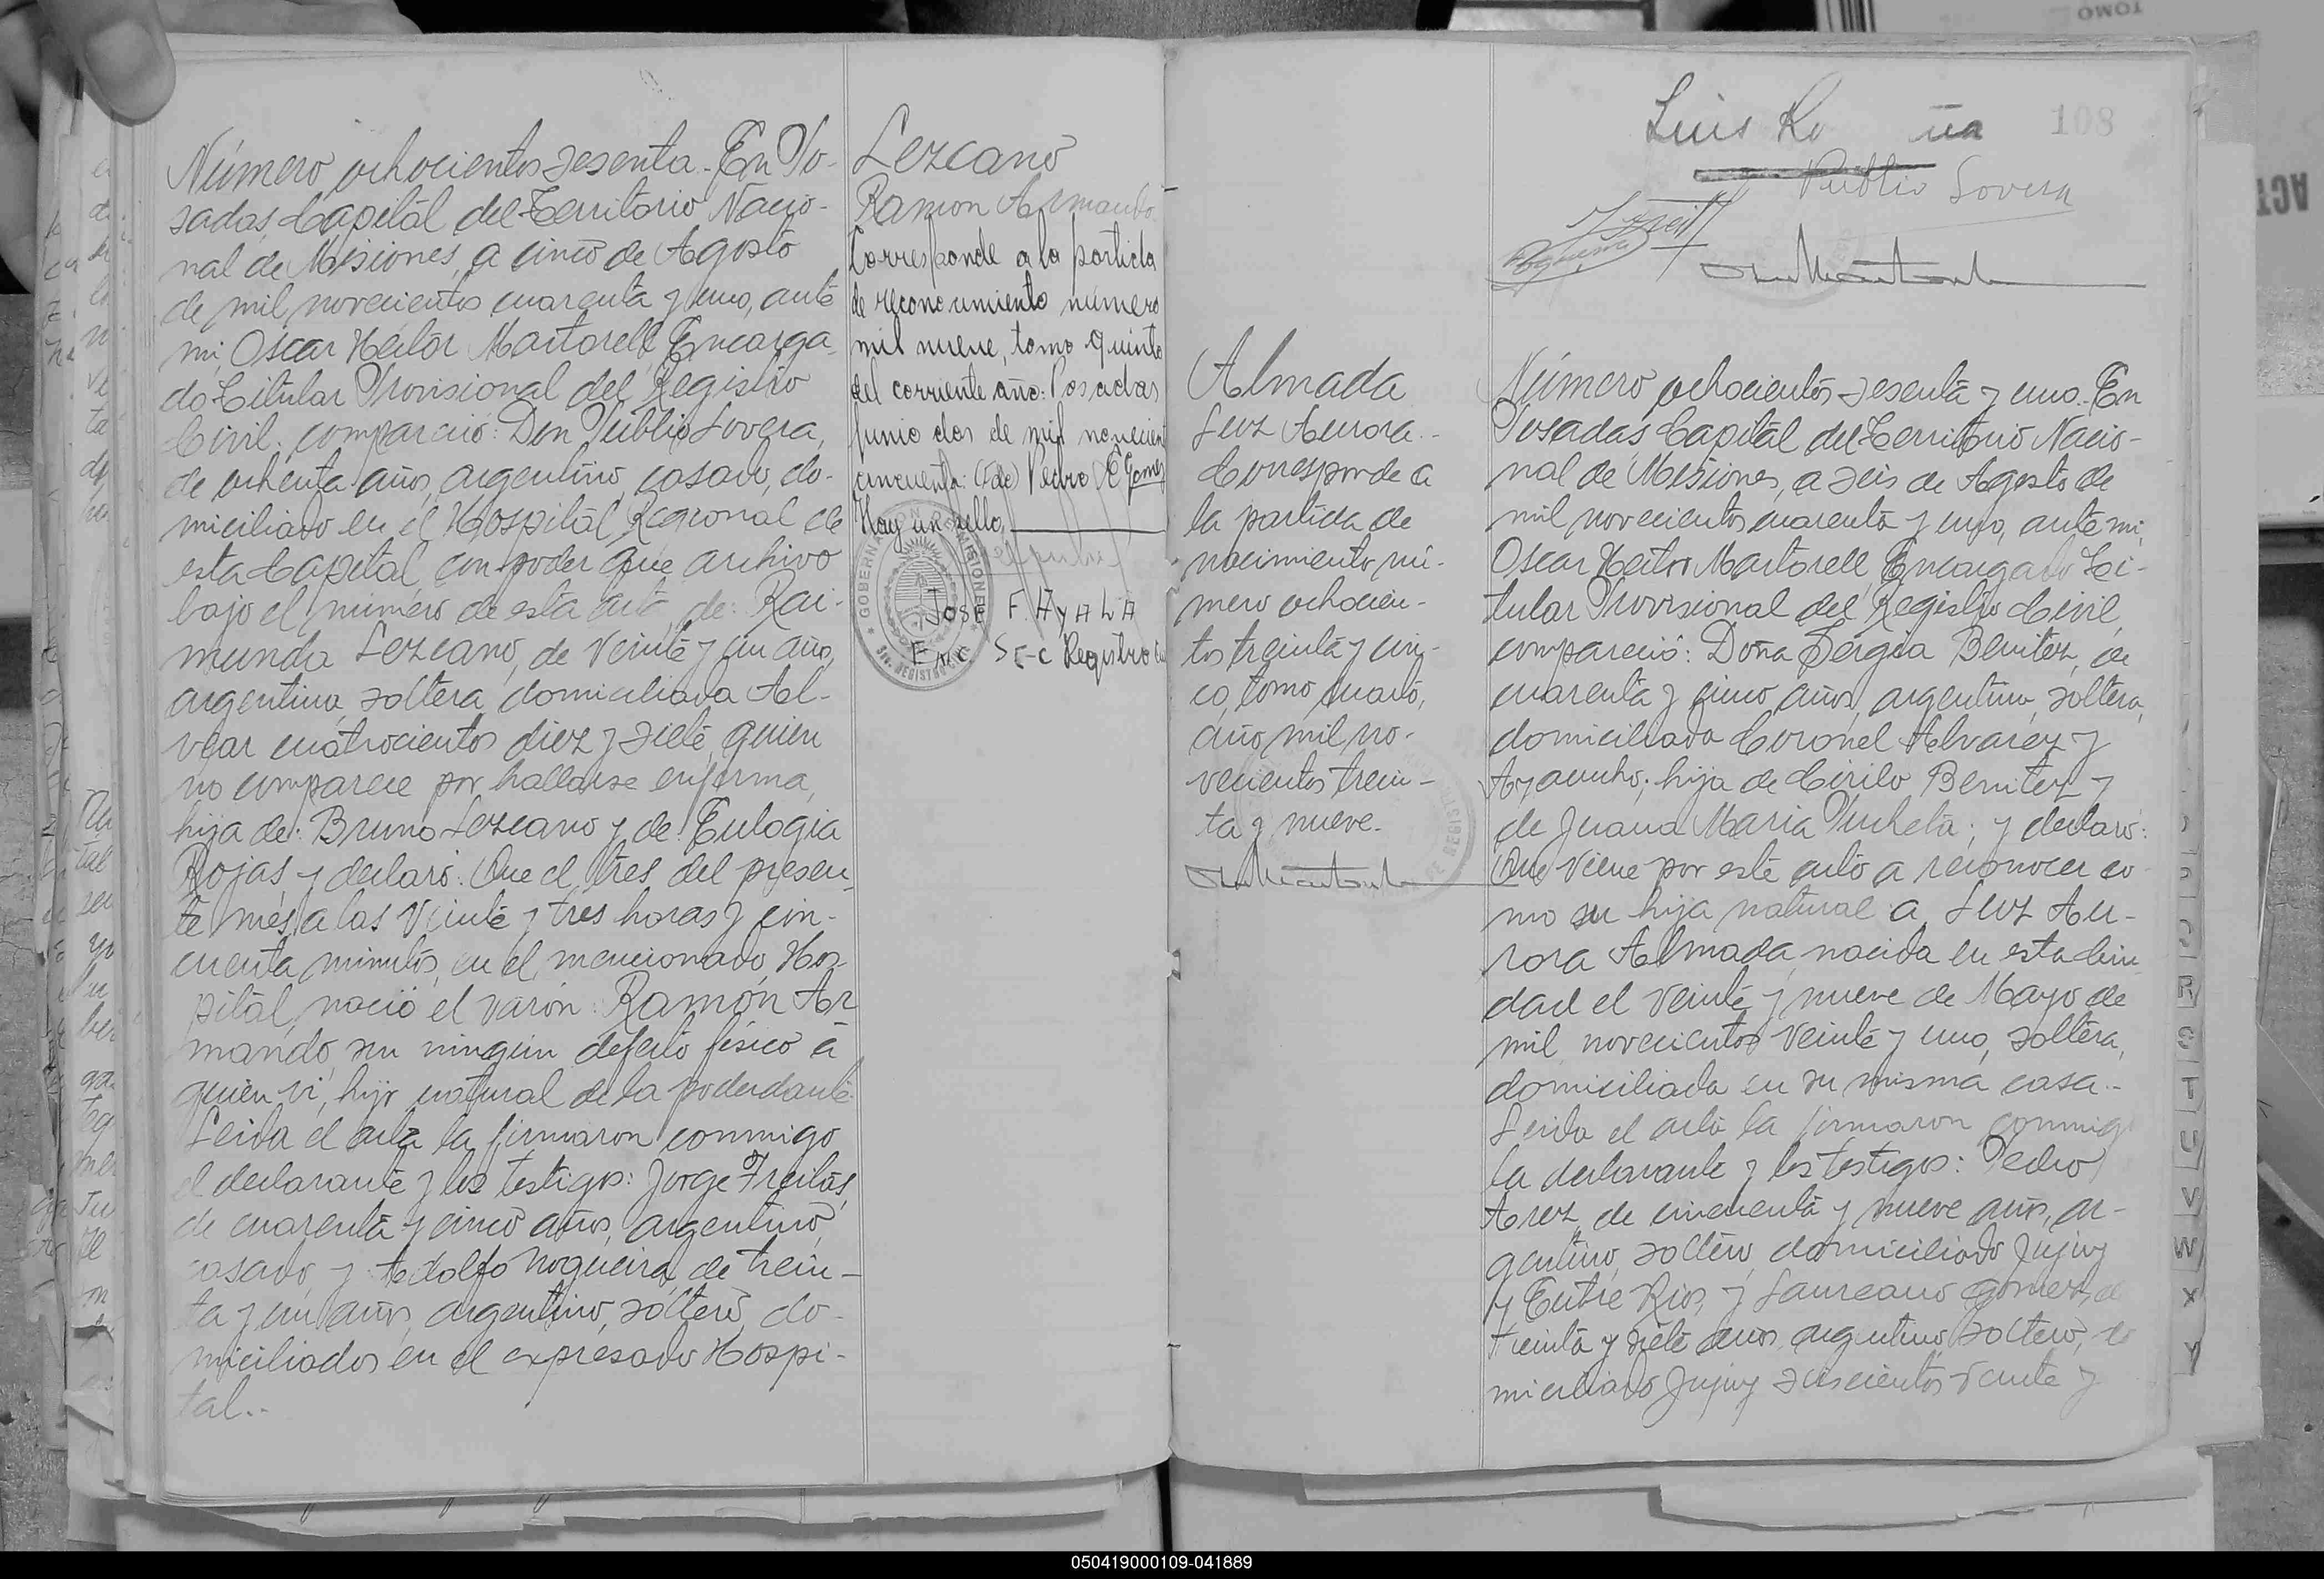 Número ochocientos sesenta. En Po-
sadas, Capital del Territorio Nacio-
nal de Misiones, a cinco de Agosto
de mil novecientos cuarenta y uno, ante
mi, Oscar Héctor Martorell, Encarga
do Titular Provisional del Registro
Civil; compareció: Don Publio Lovera,
de ochenta años, argentino, casado, do-
miciliado en el Hospital Regional de
esta Capital, con poder que archivo
bajo el número de esta acta, de: Rai-
munda Lezcano, de veinte y un año,
argentina, soltera, domiciliada Al-
vear cuatrocientos diez y siete, quien
no comparece por hallarse enferma,
hija de: Bruno Lezcano y de: Eulogia
Rojas, y declaró: Que el tres del presen-
te més, a las veinte y tres horas y cin-
cuenta minutos, en el mencionado Hos-
pital, nació el varón: Ramón Ar
mando, sin ningún defecto físico á
quien ví, hijo natural de la poderdante.
Leida el acta la firmaron conmigo
el declarante y los testigos: Jorge Freitas,
de cuarenta y cinco años, argentino,
casado, y Adolfo Nogueira, de trein-
ta y un años, argentino, soltero, do-
miciliados en el expresado Hospi-
tal..-
Lezcano
Ramon Armando
Corresponde a la partida
de reconocimiento número
mil nueve, tomo quinto
del corriente año: Posadas
Junio dos de mil novecient
cincuenta: (fdo) Pedro E Gomez
Hay un sello,
GOBERNACION DE MISIONES
JOSE F. AYALA
Enc Sec Registro
108
Luis Ro ua
Publio Lovera
Almada
Luz Aurora.-
Corresponde a
la partida de
nacimiento nú-
mero ochocien-
tos treinta y cin-
co, tomo cuarto,
año mil no-
vecientos trein-
ta y nueve.
Número ochocientos sesenta y uno. En
Posadas, Capital del Territorio Nacio-
nal de Misiones, a seis de Agosto de
mil novecientos cuarenta y uno, ante mi,
Oscar Héctor Martorell, Encargado Ti-
tular Provisional del Registro Civil,
compareció: Doña Sergia Benitez, de
cuarenta y cinco años, argentina, soltera,
domiciliada Coronel Alvarez y
Ayacucho; hija de Cirilo Benitez y
de Juana María Pucheta; y declaró:
Que viene por este acto a reconocer co
mo su hija natural a Luz Au-
rora Almada, nacida en esta Ciu
dad el veinte y nueve de Mayo de
mil novecientos veinte y uno, soltera,
domiciliada en su misma casa.-
Leida el acta la firmaron conmigo
la declarante y los testigos: Pedro
Arez, de cincuenta y nueve años, ar-
gentino, soltero, domiciliado Jujuy
y Entre Rios, y Laureano Gómez, de
treinta y siete años, argentino, soltero, do
miciliado Jujuy seiscientos veinte y
R
S
T
U
V
W
X
Y
TOMO
050419000109-041889